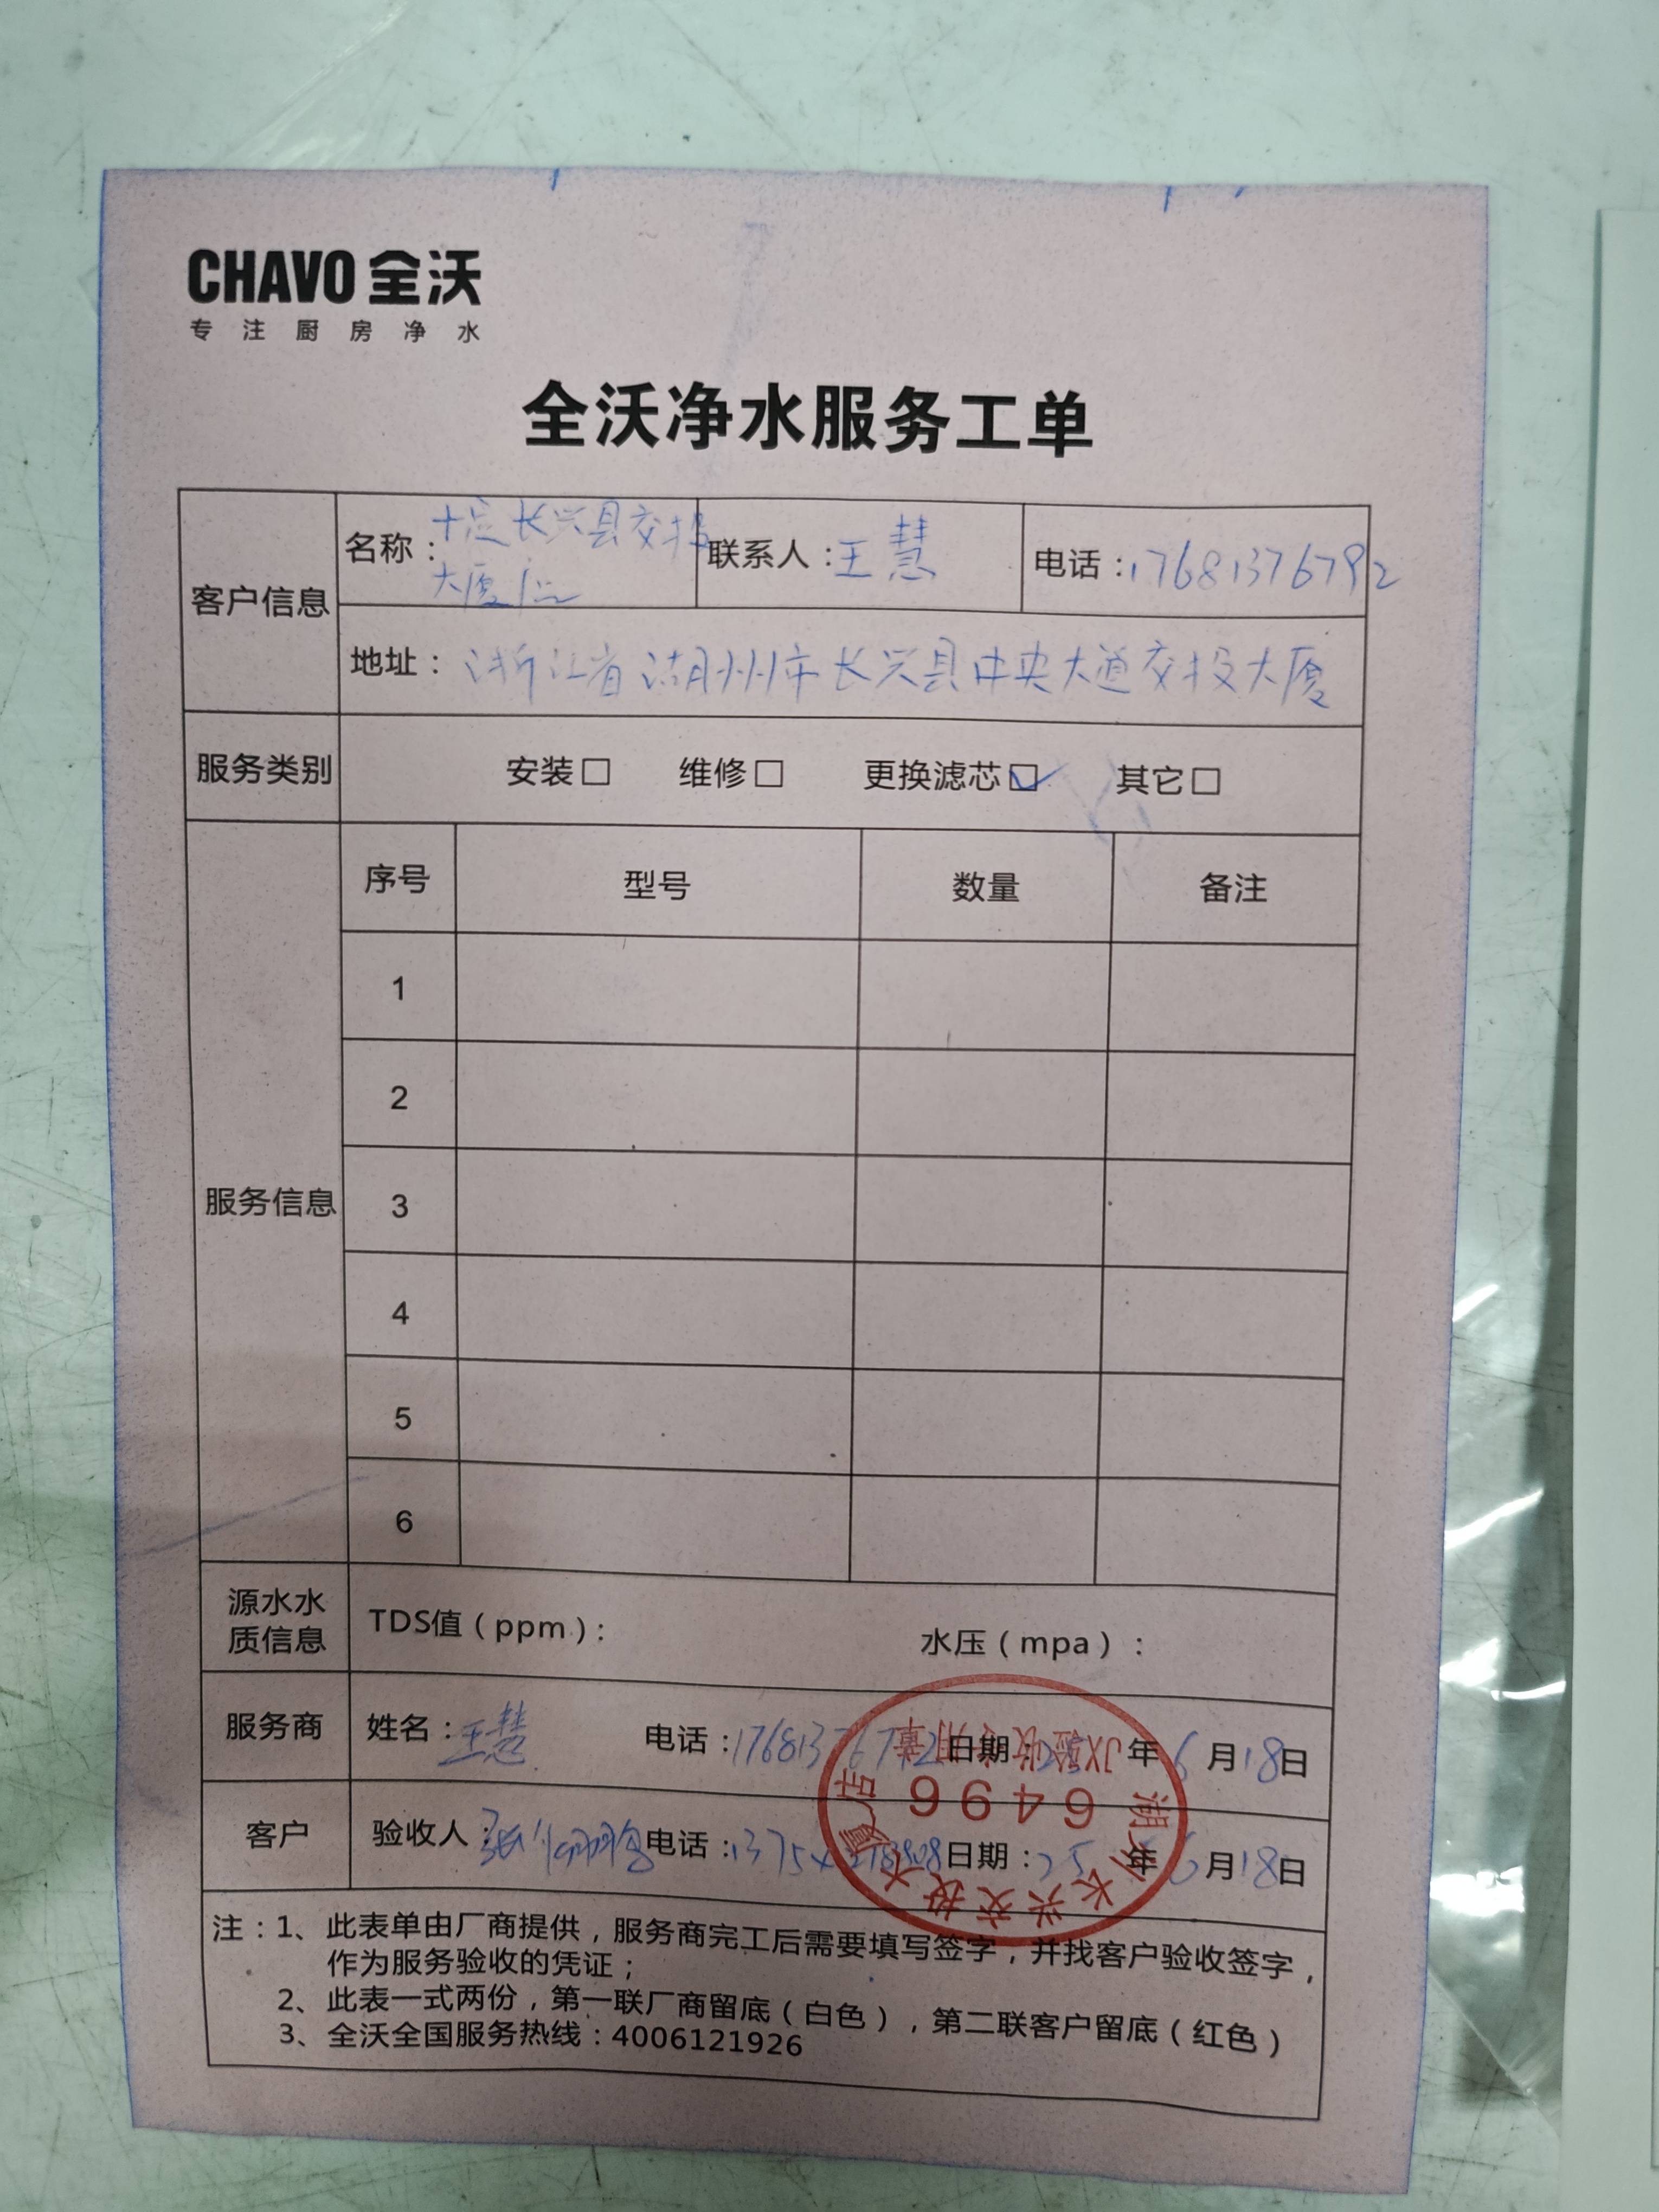 CHAVO 全沃
专注厨房净水
全沃净水服务工单
客户信息
名称： 长兴县交投大厦店
联系人：王慧
电话：17681376792
地址：浙江省湖州市长兴县中央大道交投大厦
服务类别
安装□ 维修□ 更换滤芯☑ 其它□
服务信息
序号 型号 数量 备注
1
2
3
4
5
6
源水水质信息
TDS值（ppm）： 水压（mpa）：
服务商 姓名：王慧 电话：17681376792 日期：25年6月18日
客户 验收人： 电话： 日期：25年6月18日
湖州长兴交投大厦店
6496
JX验收专用章
注：1、此表单由厂商提供，服务商完工后需要填写签字，并找客户验收签字，
作为服务验收的凭证；
2、此表一式两份，第一联厂商留底（白色），第二联客户留底（红色）
3、全沃全国服务热线：4006121926